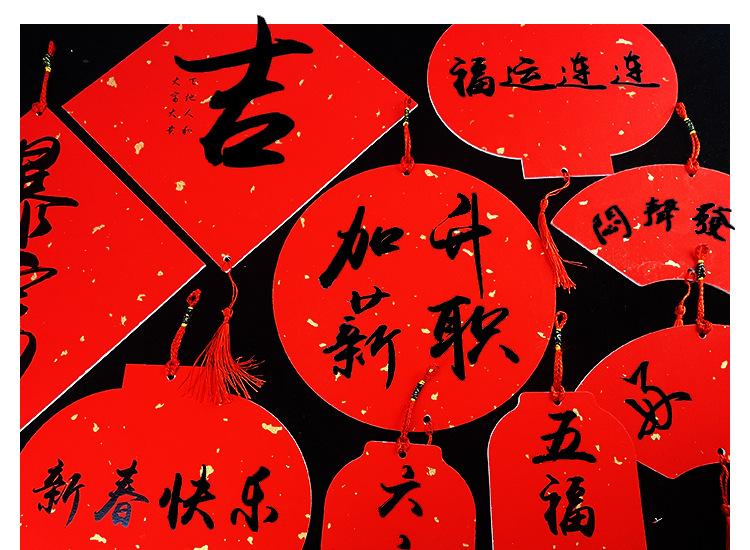 吉
天地人和
大富大贵
福运连连
暴富
闷声發
升职
加薪
好
新春快乐
六
五福